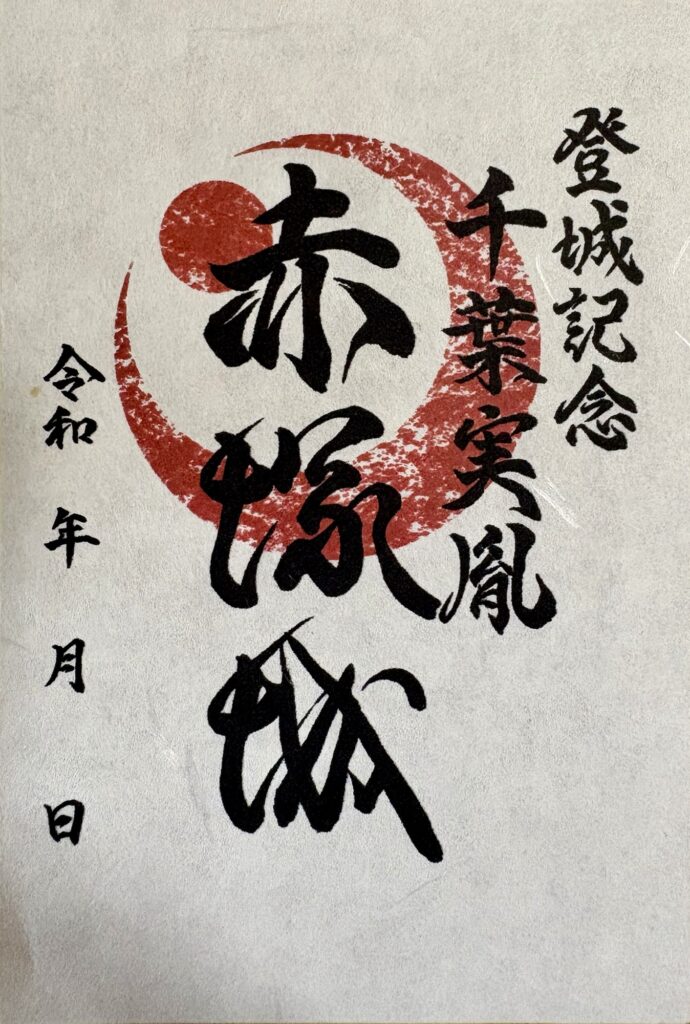 登城記念
千葉実胤
赤塚城
令和 年 月 日